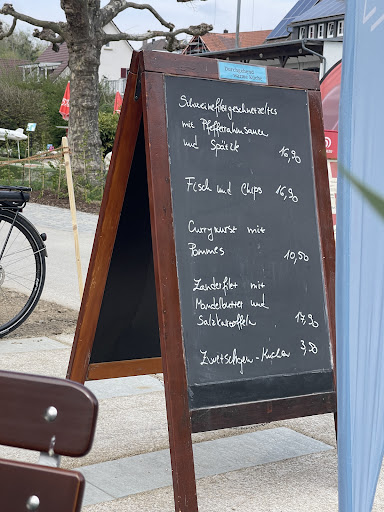 Durchgehend
warme Küche
Schweinefiletgeschnetzeltes
mit Pfefferrahmsauce
und Spätzle 16,90
Fisch und Chips 16,90
Currywurst mit
Pommes 10,50
Zanderfilet mit
Mandelbutter und
Salzkartoffeln 17,90
Zwetschgen-Kuchen 3,50